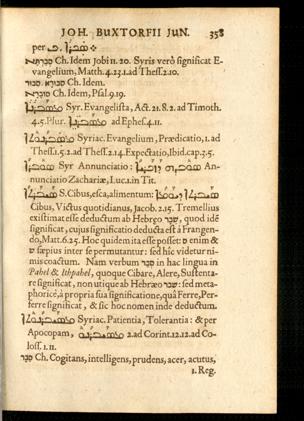 JOH. BUXTORFII JUN. 358
per
Ch. Idem Jobi 11. 20. Syris verò significat E-
vangelium, Matth. 4.23.1.ad Thess.2.10.
Ch. Idem
Ch. Idem, Psal.9.19.
Syr. Evangelista, Act. 21.8.2.ad Timoth.
4.5. Plur. ad Ephes.4.11.
Syriac. Evangelium, Prædicatio, 1.ad
Thess.1.5.2.ad Thess.2.14. Expectatio, Ibid. cap.3.5.
Syr Annunciatio: An-
nunciatio Zachariæ, Luc.1.in Tit.
S. Cibus, esca, alimentum:
Cibus, Victus quotidianus, Jacob.2.15. Tremellius
existimat esse deductum ab Hebræo שבר, quod idē
significat, cujus significatio deducta est à frangen-
do, Matt.6.25. Hoc quidem ita esse posset: ש enim &
ס sæpius inter se permutantur: sed hîc videtur ni-
mis coactum. Nam verbum סבר in hac lingua in
Pahel & Ithpahel, quoque Cibare, Alere, Sustenta-
re significat, non utique ab Hebræo שבר: sed meta-
phoricè, à propria sua significatione, quâ Ferre, Per-
ferre significat, & sic hoc nomen inde deductum.
Syriac. Patientia, Tolerantia: & per
Apocopam, 2.ad Corint.12.12.ad Co-
loss. 1.11.
סבר Ch. Cogitans, intelligens, prudens, acer, acutus,
1. Reg.